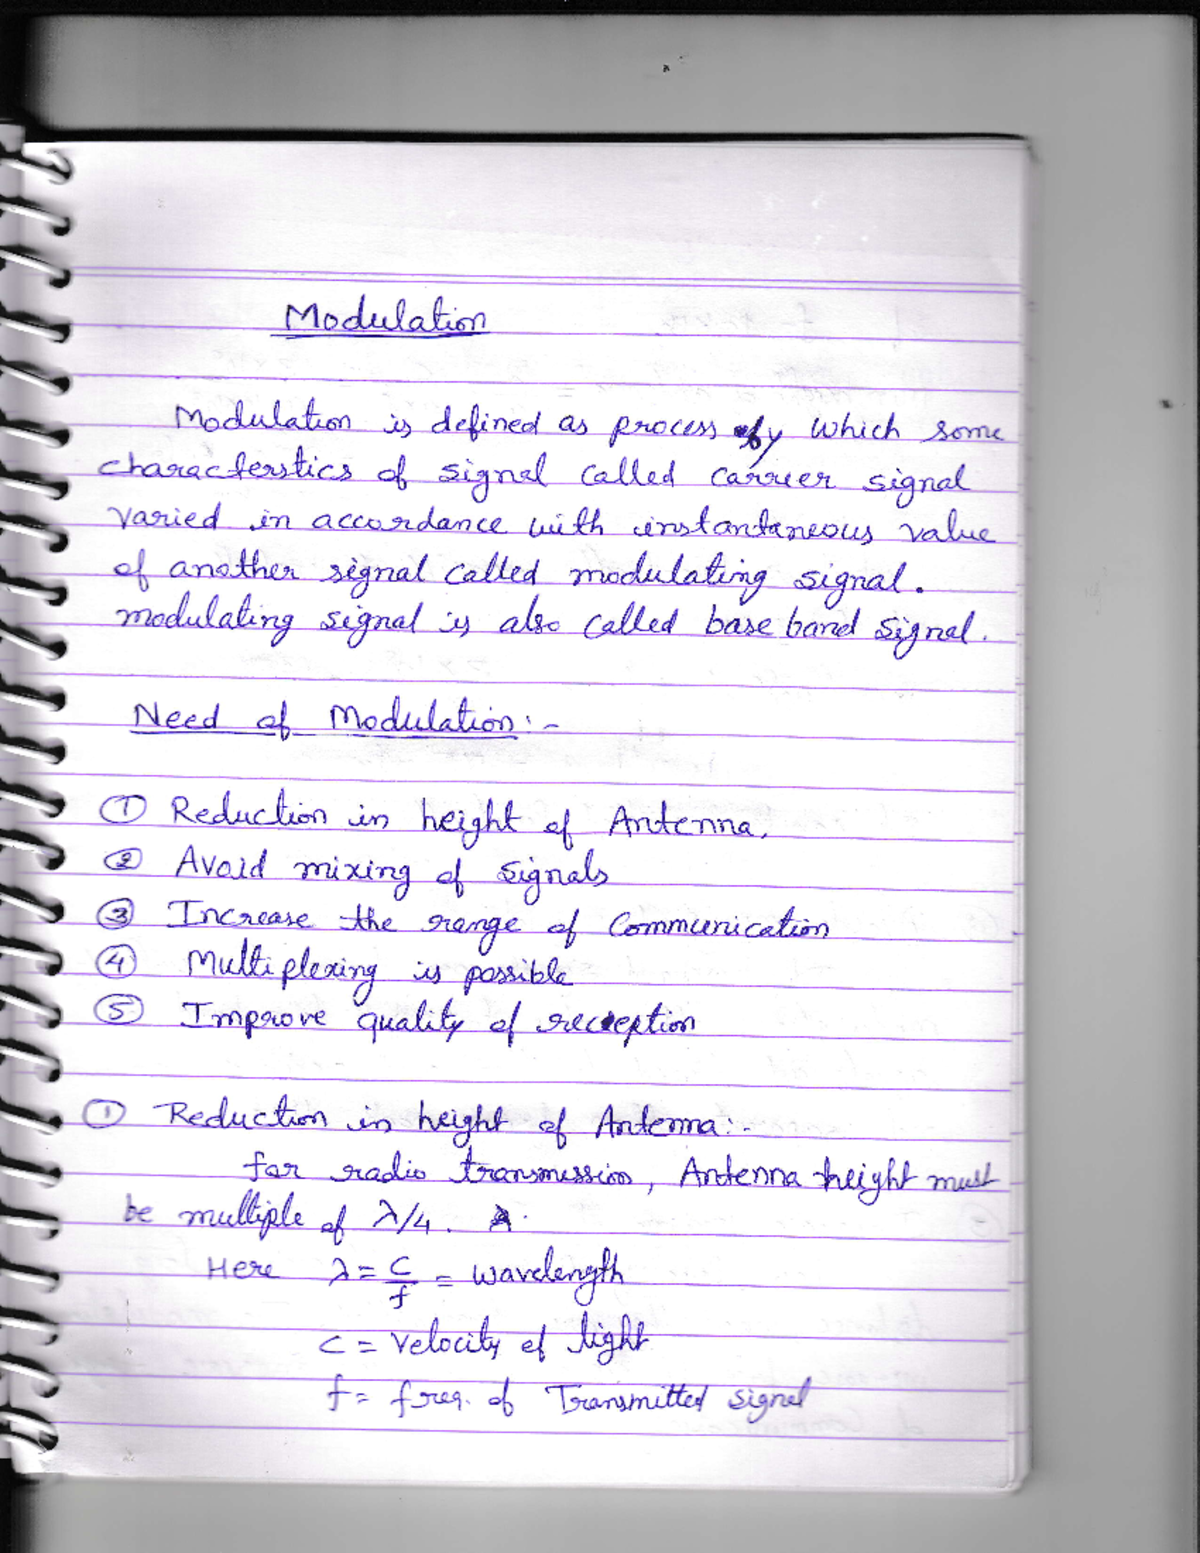 Modulation
Modulation is defined as process by which some
characterstics of signal called carrier signal
varied in accordance with instantaneous value
of another signal called modulating signal.
modulating signal is also called base band signal.
Need of Modulation:-
① Reduction in height of Antenna.
② Avoid mixing of signals
③ Increase the range of Communication
④ Multiplexing is possible
⑤ Improve quality of reception
① Reduction in height of Antenna:-
for radio transmission, Antenna height must
be multiple of λ/4.
Here λ = c/f = wavelength
c = velocity of light
f = freq. of Transmitted signal